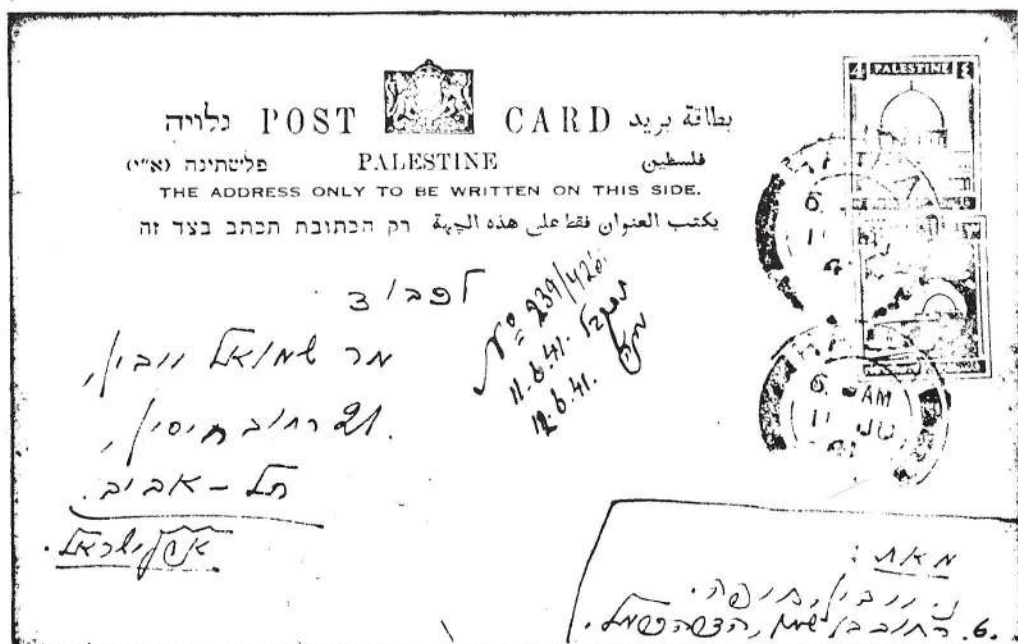 גלויה POST CARD بطاقة بريد
פלישתינה (א״י) PALESTINE فلسطين
THE ADDRESS ONLY TO BE WRITTEN ON THIS SIDE.
يكتب العنوان فقط على هذه الجهة רק הכתובת תכתב בצד זה
4 PALESTINE
לכבוד
מר שמואל ווביין,
21 רחוב חיסין,
תל-אביב.
ארץ ישראל.
No 239/426
11.6.41. נתקבל
12.6.41.
6. AM
11 JU
מאת:
נ. ווביין, חיפה.
6. רחוב